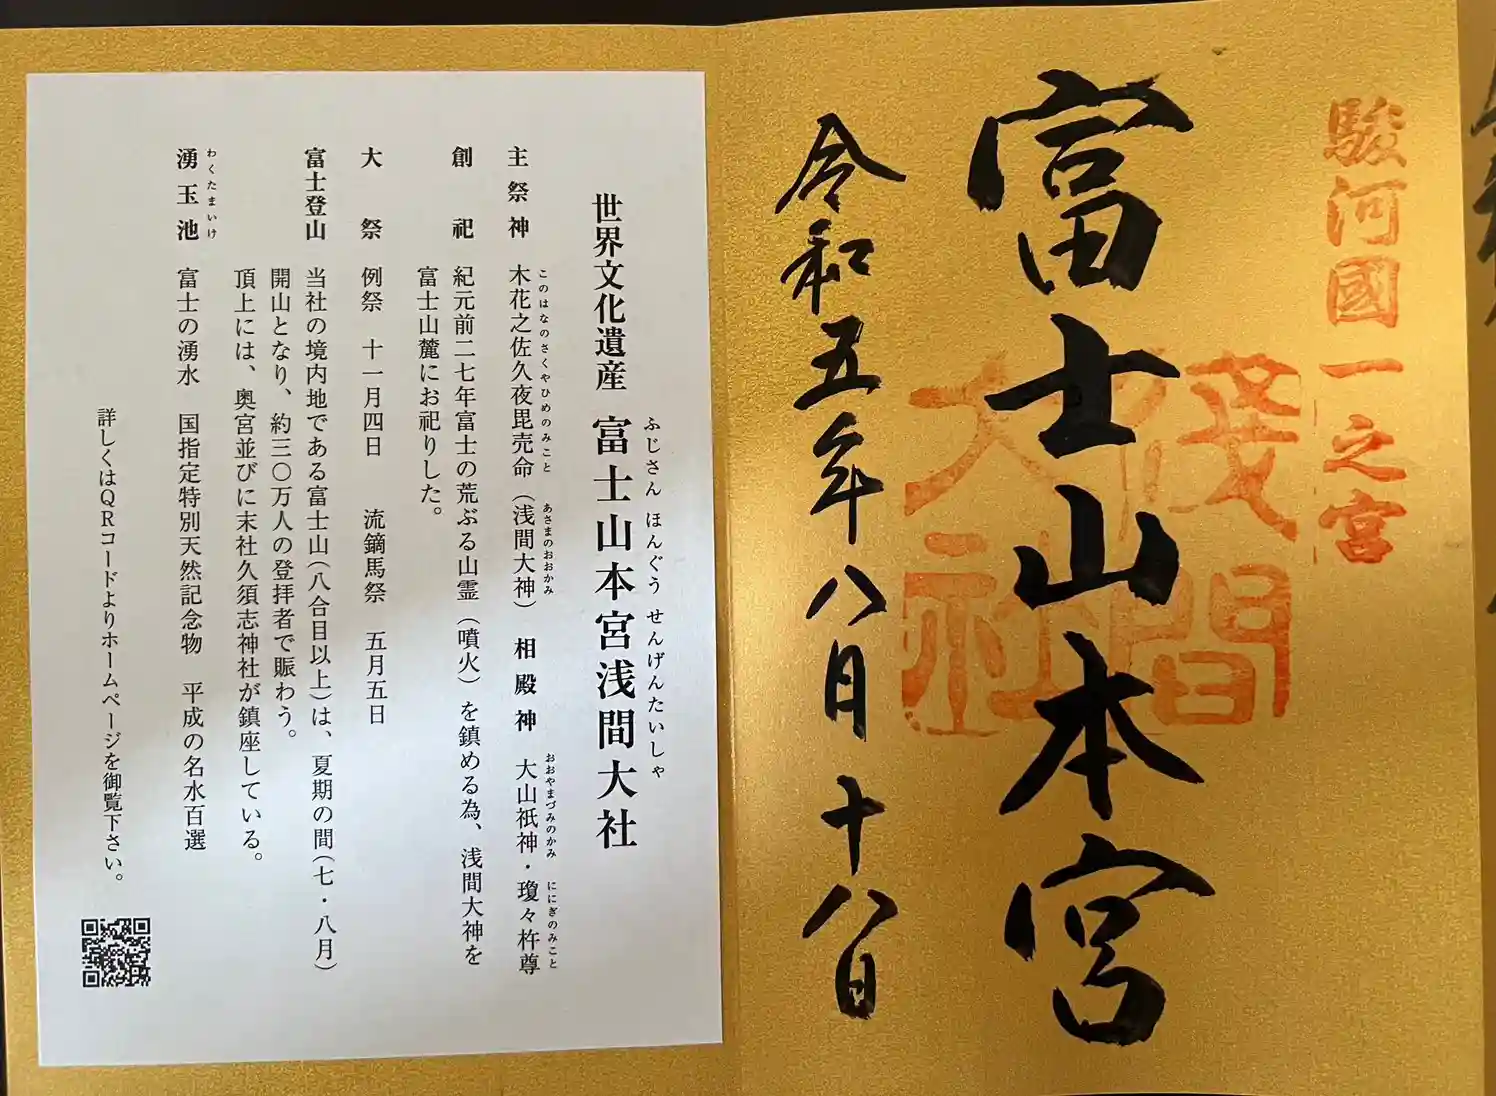 駿河國一之宮
富士山本宮
淺間大社
令和五年八月十八日
世界文化遺産 富士山本宮浅間大社
ふじさん ほんぐう せんげんたいしゃ
主祭神 木花之佐久夜毘売命（浅間大神） 相殿神 大山祇神・瓊々杵尊
このはなのさくやひめのみこと あさまのおおかみ おおやまづみのかみ ににぎのみこと
創祀 紀元前二七年富士の荒ぶる山霊（噴火）を鎮める為、浅間大神を
富士山麓にお祀りした。
大祭 例祭 十一月四日 流鏑馬祭 五月五日
富士登山 当社の境内地である富士山（八合目以上）は、夏期の間（七・八月）
開山となり、約三〇万人の登拝者で賑わう。
頂上には、奥宮並びに末社久須志神社が鎮座している。
わくたまいけ
湧玉池 富士の湧水 国指定特別天然記念物 平成の名水百選
詳しくはQRコードよりホームページを御覧下さい。